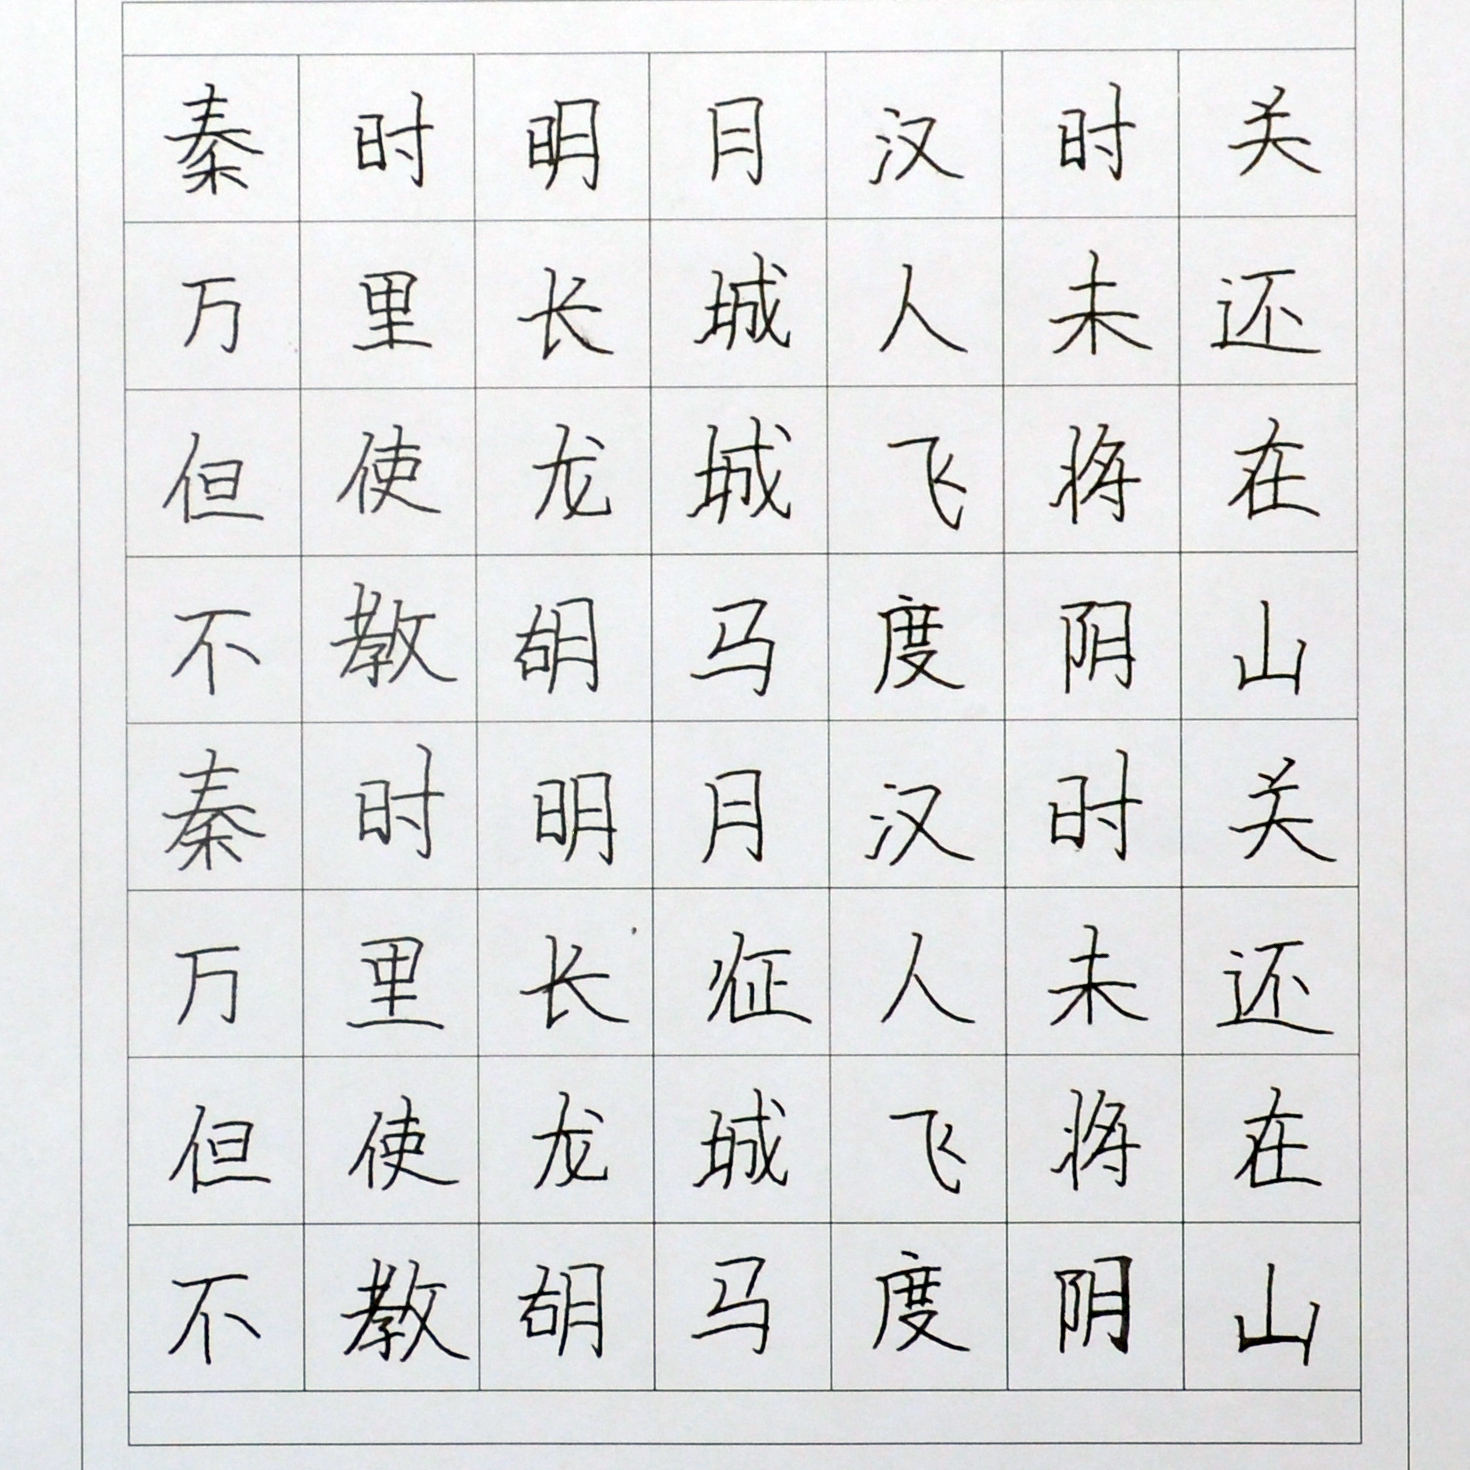 秦时明月汉时关
万里长城人未还
但使龙城飞将在
不教胡马度阴山
秦时明月汉时关
万里长征人未还
但使龙城飞将在
不教胡马度阴山